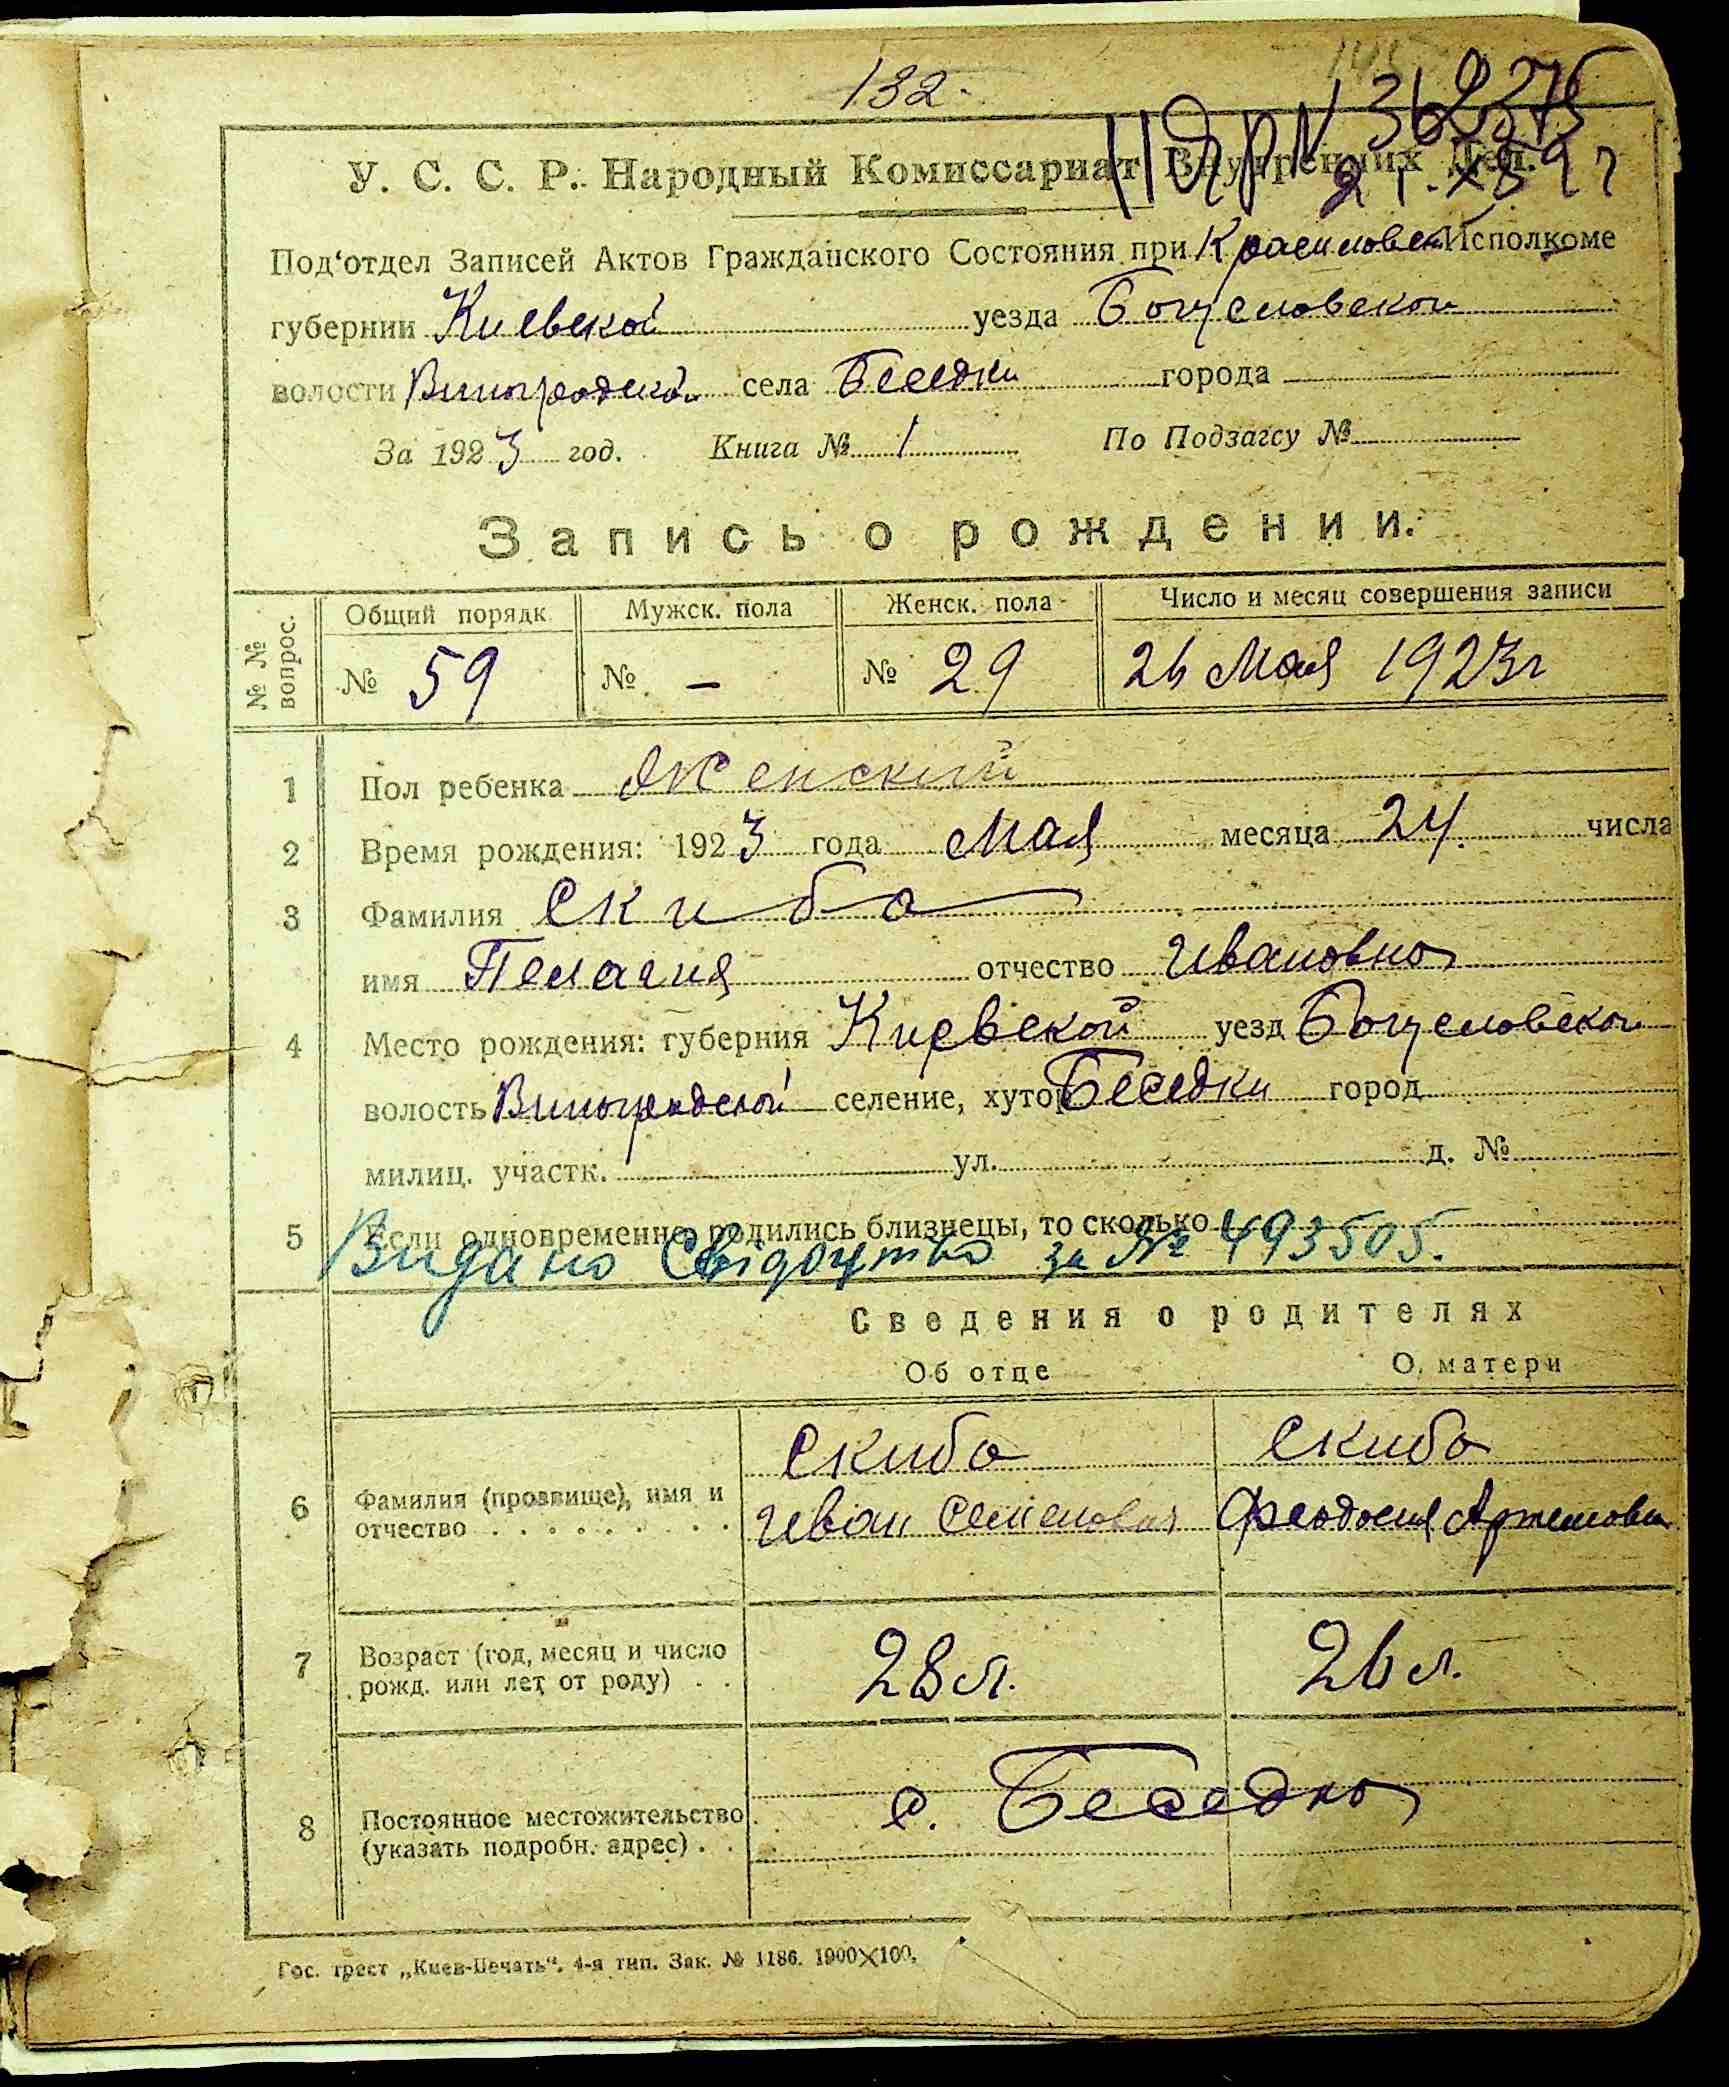 132.
У. С. С. Р. Народный Комиссариат Внутренних Дел.
Под'отдел Записей Актов Гражданского Состояния при Исполкоме
губернии Киевской уезда Богуславской
волости Виноградской села Беседки города
За 1923 год. Книга № 1 По Подзагсу №
Запись о рождении.
№ № вопрос.
Общий порядк. Мужск. пола Женск. пола Число и месяц совершения записи
№ 59 № – № 29 26 Мая 1923 г
1 Пол ребенка Женский
2 Время рождения: 1923 года Мая месяца 24. числа
3 Фамилия Скиба
имя Пелагия отчество Ивановна
4 Место рождения: губерния Киевской уезд Богуславской
волость Виноградской селение, хутор Беседки город
милиц. участк. ул. д. №
5 Если одновременно родились близнецы, то сколько
Видано Свідоцтво за № 493505.
Сведения о родителях
Об отце О матери
6 Фамилия (прозвище), имя и отчество Скиба Скиба
Иван Семенович Феодосия Артемовна
7 Возраст (год, месяц и число рожд. или лет от роду) 28 л. 26 л.
8 Постоянное местожительство (указать подробн. адрес) с. Беседка
Гос. трест „Киев-Печать“. 4-я тип. Зак. № 1186. 1900×100.